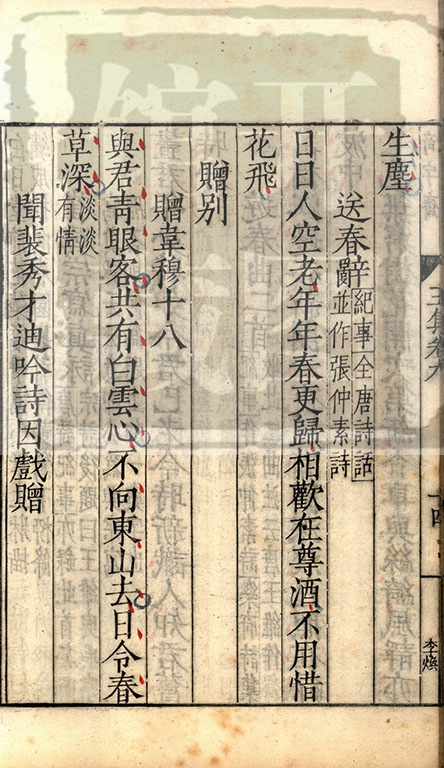 生塵
送春辭紀事全唐詩話並作張仲素詩
日日人空老年年春更歸相歡在尊酒不用惜
花飛
贈別
贈韋穆十八
與君青眼客共有白雲心不向東山去日令春
草深淡淡有情
聞裴秀才迪吟詩因戲贈
李煥